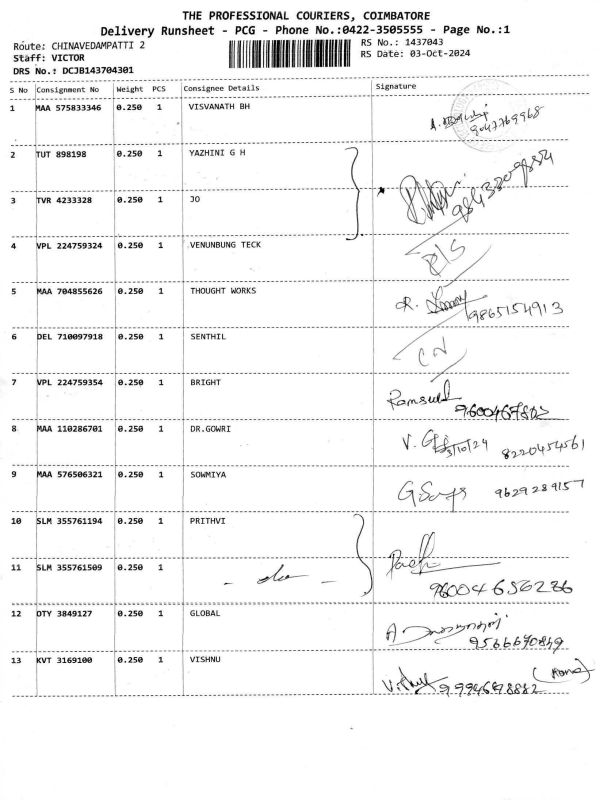 THE PROFESSIONAL COURIERS, COIMBATORE
Delivery Runsheet - PCG - Phone No.:0422-3505555 - Page No.:1
Route: CHINAVEDAMPATTI 2
RS No.: 1437043
Staff: VICTOR
RS Date: 03-Oct-2024
DRS No.: DCJB143704301
S No Consignment No Weight PCS Consignee Details Signature
1 MAA 575833346 0.250 1 VISVANATH BH
9047769968
2 TUT 898198 0.250 1 YAZHINI G H
3 TVR 4233328 0.250 1 JO
4 VPL 224759324 0.250 1 VENUNBUNG TECK
5 MAA 704855626 0.250 1 THOUGHT WORKS R.
9865154913
6 DEL 710097918 0.250 1 SENTHIL
7 VPL 224759354 0.250 1 BRIGHT
8 MAA 110286701 0.250 1 DR.GOWRI V.
3/10/24 8220454561
9 MAA 576506321 0.250 1 SOWMIYA 9629289157
10 SLM 355761194 0.250 1 PRITHVI
11 SLM 355761509 0.250 1
96004 656236
12 OTY 3849127 0.250 1 GLOBAL
9566670849
13 KVT 3169100 0.250 1 VISHNU